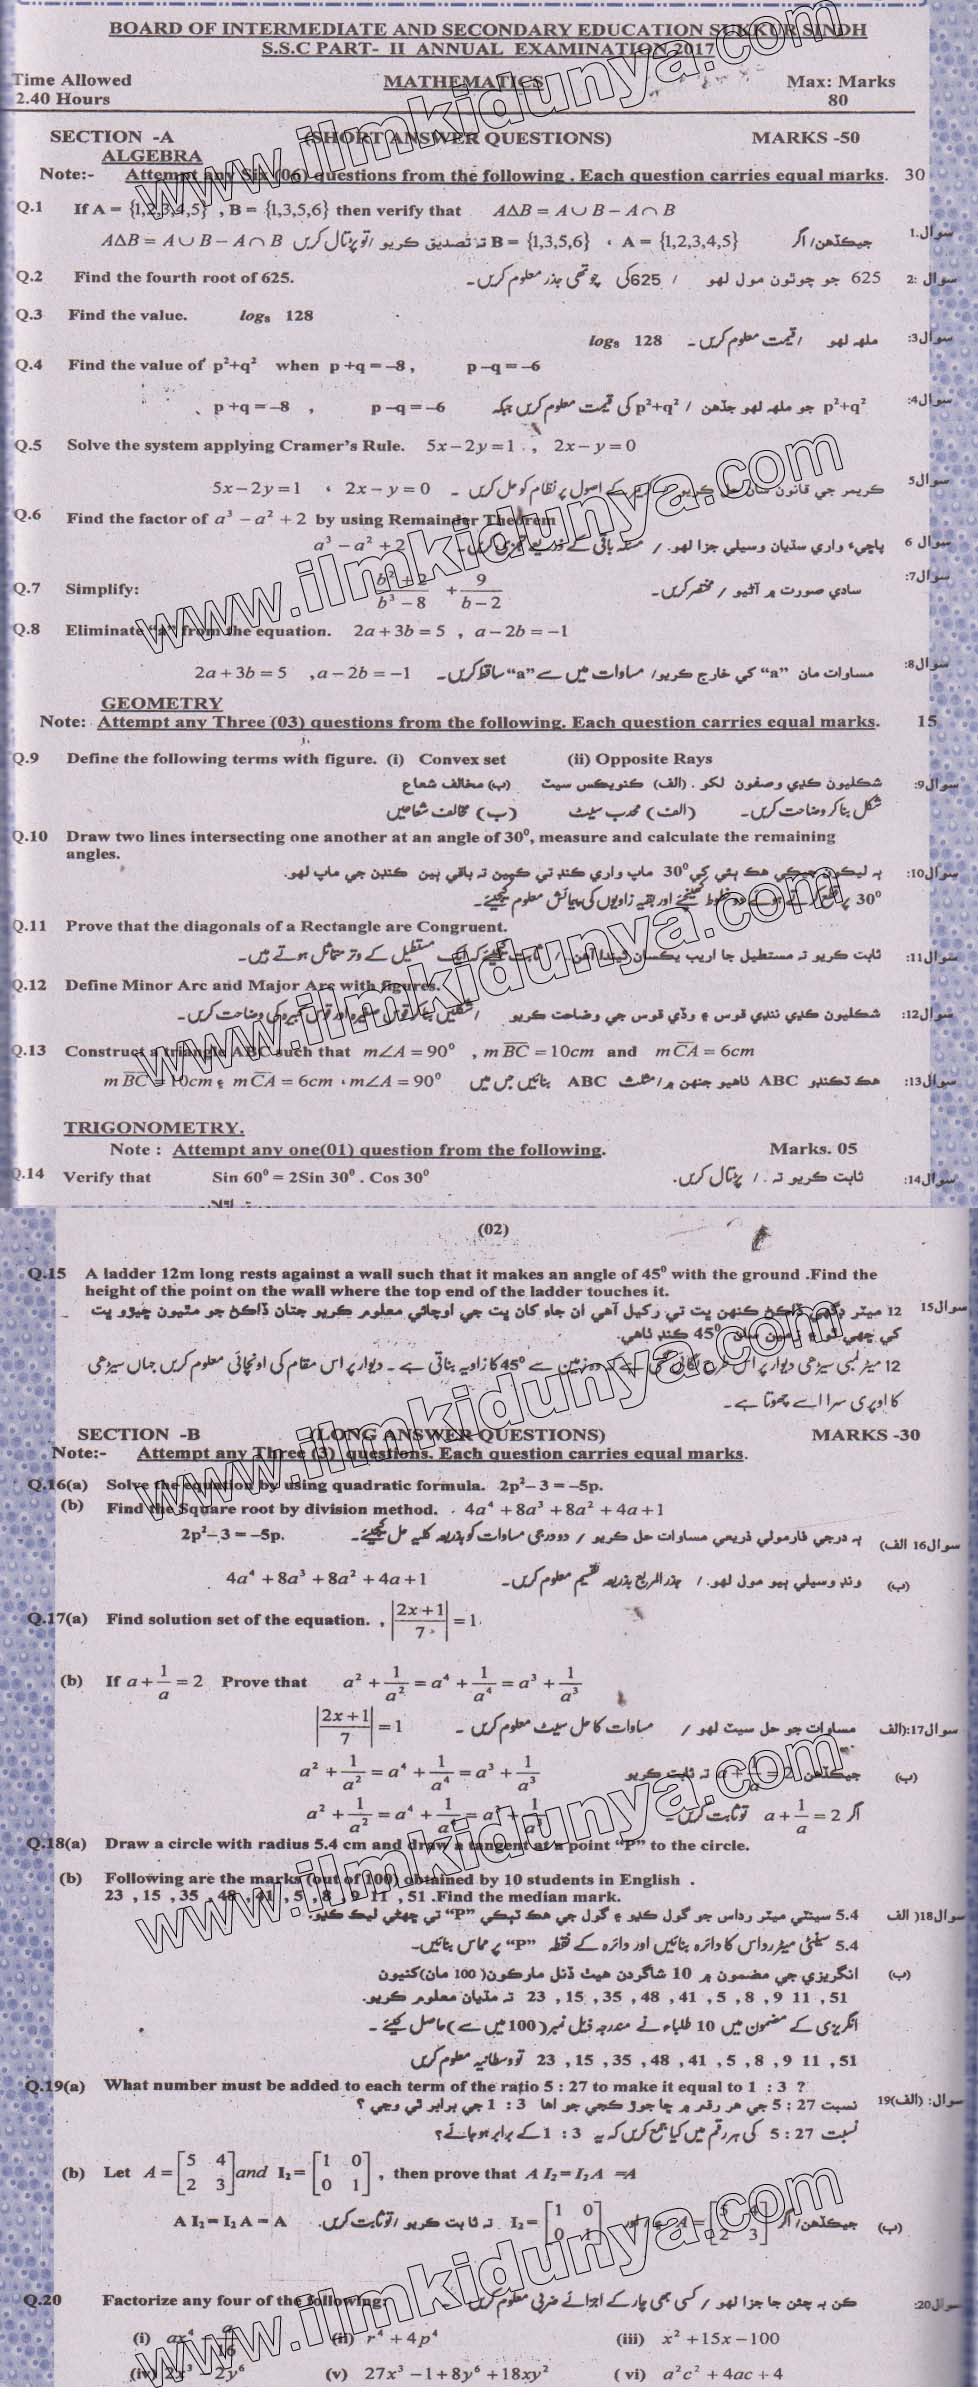 BOARD OF INTERMEDIATE AND SECONDARY EDUCATION SUKKUR SINDH
S.S.C PART- II ANNUAL EXAMINATION 2017
Time Allowed
2.40 Hours
MATHEMATICS
Max: Marks
80
SECTION -A (SHORT ANSWER QUESTIONS) MARKS -50
ALGEBRA
Note:- Attempt any Six (06) questions from the following . Each question carries equal marks. 30
Q.1 If A = {1,2,3,4,5} , B = {1,3,5,6} then verify that AΔB = A∪B−A∩B
سوال1. جيڪڏهن/ اگر A = {1,2,3,4,5} ، B = {1,3,5,6} ته تصديق ڪريو /تو پڑتال کریں AΔB = A∪B−A∩B
Q.2 Find the fourth root of 625.
سوال 2: 625 جو چوٿون مول لهو / 625کی چوتھی جذر معلوم کریں۔
Q.3 Find the value. log₈ 128
سوال3: ملهه لهو /قیمت معلوم کریں۔ log₈ 128
Q.4 Find the value of p²+q² when p+q = −8 , p−q = −6
سوال4: p²+q² جو ملهه لهو جڏهن / p²+q² کی قیمت معلوم کریں جبکہ p−q = −6 , p+q = −8
Q.5 Solve the system applying Cramer's Rule. 5x−2y=1 , 2x−y=0
سوال5 ڪريمر جي قانون سان حل ڪريو کریمر کے اصول پر نظام کو حل کریں۔ 5x−2y=1 ، 2x−y=0
Q.6 Find the factor of a³−a²+2 by using Remainder Theorem
سوال 6 باقيءَ واري سڌيان وسيلي جزا لهو. / مسئلہ باقی کے ذریعے تجزی کریں۔ a³−a²+2
Q.7 Simplify: (b²+2)/(b³−8) + 9/(b−2)
سوال7: سادي صورت ۾ آڻيو / مختصر کریں۔
Q.8 Eliminate "a" from the equation. 2a+3b=5 , a−2b=−1
سوال8: مساوات مان "a" کي خارج ڪريو/ مساوات میں سے "a" ساقط کریں۔ 2a+3b=5 ,a−2b=−1
GEOMETRY
Note: Attempt any Three (03) questions from the following. Each question carries equal marks. 15
Q.9 Define the following terms with figure. (i) Convex set (ii) Opposite Rays
سوال9: شڪليون ڪڍي وصفون لکو . (الف) ڪنويڪس سيٽ (ب) مخالف شعاع
شکل بنا کر وضاحت کریں۔ (الف) محدب سیٹ (ب) مخالف شعاعیں
Q.10 Draw two lines intersecting one another at an angle of 30⁰, measure and calculate the remaining
angles.
سوال10: ٻه ليڪون جيڪي هڪ ٻئي کي 30⁰ ماپ واري ڪنڊ تي ڪپين ته باقي ٻين ڪنڊن جي ماپ لهو.
30⁰ پر قطع کرتے ہوئے دو خطوط کھینچئے اور بقیہ زاویوں کی پیمائش معلوم کیجئے۔
Q.11 Prove that the diagonals of a Rectangle are Congruent.
سوال11: ثابت ڪريو ته مستطيل جا اريب يڪسان ٿيندا آهن. / ثابت کیجئے کہ ایک مستطیل کے وتر متماثل ہوتے ہیں۔
Q.12 Define Minor Arc and Major Arc with figures.
سوال12: شڪليون ڪڍي ننڍي قوس ۽ وڏي قوس جي وضاحت ڪريو /شکلیں بنا کر قوس صغیرہ اور قوس کبیرہ کی وضاحت کریں۔
Q.13 Construct a triangle ABC such that m∠A = 90⁰ , m BC = 10cm and m CA = 6cm
سوال13: هڪ ٽڪنڊو ABC ٺاهيو جنهن ۾/مثلث ABC بنائیں جس میں m∠A = 90⁰ ، m CA = 6cm ۽ m BC = 10cm
TRIGONOMETRY.
Note : Attempt any one(01) question from the following. Marks. 05
Q.14 Verify that Sin 60⁰ = 2Sin 30⁰ . Cos 30⁰
سوال14: ثابت ڪريو ته . / پڑتال کریں.
(02)
Q.15 A ladder 12m long rests against a wall such that it makes an angle of 45⁰ with the ground .Find the
height of the point on the wall where the top end of the ladder touches it.
سوال15 12 ميٽر ڊگهي ڏاڪڻ ڪنهن ڀت تي رکيل آهي ان جاءِ کان ڀت جي اوچائي معلوم ڪريو جتان ڏاڪڻ جو مٿيون ڇيڙو ڀت
کي ڇهي ٿو ۽ زمين سان 45⁰ ڪنڊ ٺاهي.
12 میٹر لمبی سیڑھی دیوار پر اس طرح لگائی گئی ہے کہ وہ زمین سے 45⁰ کا زاویہ بناتی ہے۔ دیوار پر اس مقام کی اونچائی معلوم کریں جہاں سیڑھی
کا اوپری سرا اسے چھوتا ہے۔
SECTION -B (LONG ANSWER QUESTIONS) MARKS -30
Note:- Attempt any Three (3) questions. Each question carries equal marks.
Q.16(a) Solve the equation by using quadratic formula. 2p²−3 = −5p.
(b) Find the Square root by division method. 4a⁴+8a³+8a²+4a+1
سوال16 الف) ٻه درجي فارمولي ذريعي مساوات حل ڪريو / دو درجی مساوات کو بذریعہ کلیہ حل کیجئے۔ 2p²−3 = −5p.
(ب) ونڊ وسيلي ٻيو مول لهو. / جذر المربع بذریعہ تقسیم معلوم کریں۔ 4a⁴+8a³+8a²+4a+1
Q.17(a) Find solution set of the equation. , |(2x+1)/7| = 1
(b) If a+1/a = 2 Prove that a²+1/a² = a⁴+1/a⁴ = a³+1/a³
سوال17:(الف مساوات جو حل سيٽ لهو / مساوات کا حل سیٹ معلوم کریں۔ |(2x+1)/7| = 1
(ب) جيڪڏهن a+1/a = 2 ته ثابت ڪريو a²+1/a² = a⁴+1/a⁴ = a³+1/a³
اگر a+1/a = 2 تو ثابت کریں۔ a²+1/a² = a⁴+1/a⁴ = a³+1/a³
Q.18(a) Draw a circle with radius 5.4 cm and draw a tangent at a point "P" to the circle.
(b) Following are the marks (out of 100) obtained by 10 students in English .
23 , 15 , 35 , 48 , 41 , 5 , 8 , 9 11 , 51 .Find the median mark.
سوال18( الف 5.4 سينٽي ميٽر رداس جو گول ڪڍيو ۽ گول جي هڪ ٽٻڪي "P" تي ڇهڻي ليڪ ڪڍيو.
5.4 سینٹی میٹر رداس کا دائرہ بنائیں اور دائرہ کے نقطہ "P" پر مماس بنائیں۔
(ب) انگريزي جي مضمون ۾ 10 شاگردن هيٺ ڏنل مارڪون( 100 مان)کنيون
23 , 15 , 35 , 48 , 41 , 5 , 8 , 9 11 , 51 ته مڌيان معلوم ڪريو.
انگریزی کے مضمون میں 10 طلباء نے مندرجہ ذیل نمبر(100 میں سے) حاصل کیئے۔
23 , 15 , 35 , 48 , 41 , 5 , 8 , 9 11 , 51 تو وسطانیہ معلوم کریں
Q.19(a) What number must be added to each term of the ratio 5 : 27 to make it equal to 1 : 3 ?
سوال: (الف)19 نسبت 27 : 5 جي هر رقم ۾ ڇا جوڙ ڪجي جو اها 3 : 1 جي برابر ٿي وڃي ؟
نسبت 27 : 5 کی ہر رقم میں کیا جمع کریں کہ یہ 3 : 1 کے برابر ہو جائے؟
(b) Let A = [5 4; 2 3] and I₂ = [1 0; 0 1] , then prove that A I₂ = I₂A =A
(ب) جيڪڏهن/ اگر A = [5 4; 2 3] ۽ / اور I₂ = [1 0; 0 1] ته ثابت ڪريو /تو ثابت کریں. A I₂ = I₂ A = A
Q.20 Factorize any four of the following:
سوال20: ڪن به چئن جا جزا لهو / کسی بھی چار کے اجزائے ضربی معلوم کریں۔
(i) ax⁴ − a/16 (ii) r⁴+4p⁴ (iii) x²+15x−100
(iv) 2x³−2y⁶ (v) 27x³−1+8y⁶+18xy² ( vi) a²c²+4ac+4
www.ilmkidunya.com
www.ilmkidunya.com
www.ilmkidunya.com
www.ilmkidunya.com
www.ilmkidunya.com
www.ilmkidunya.com